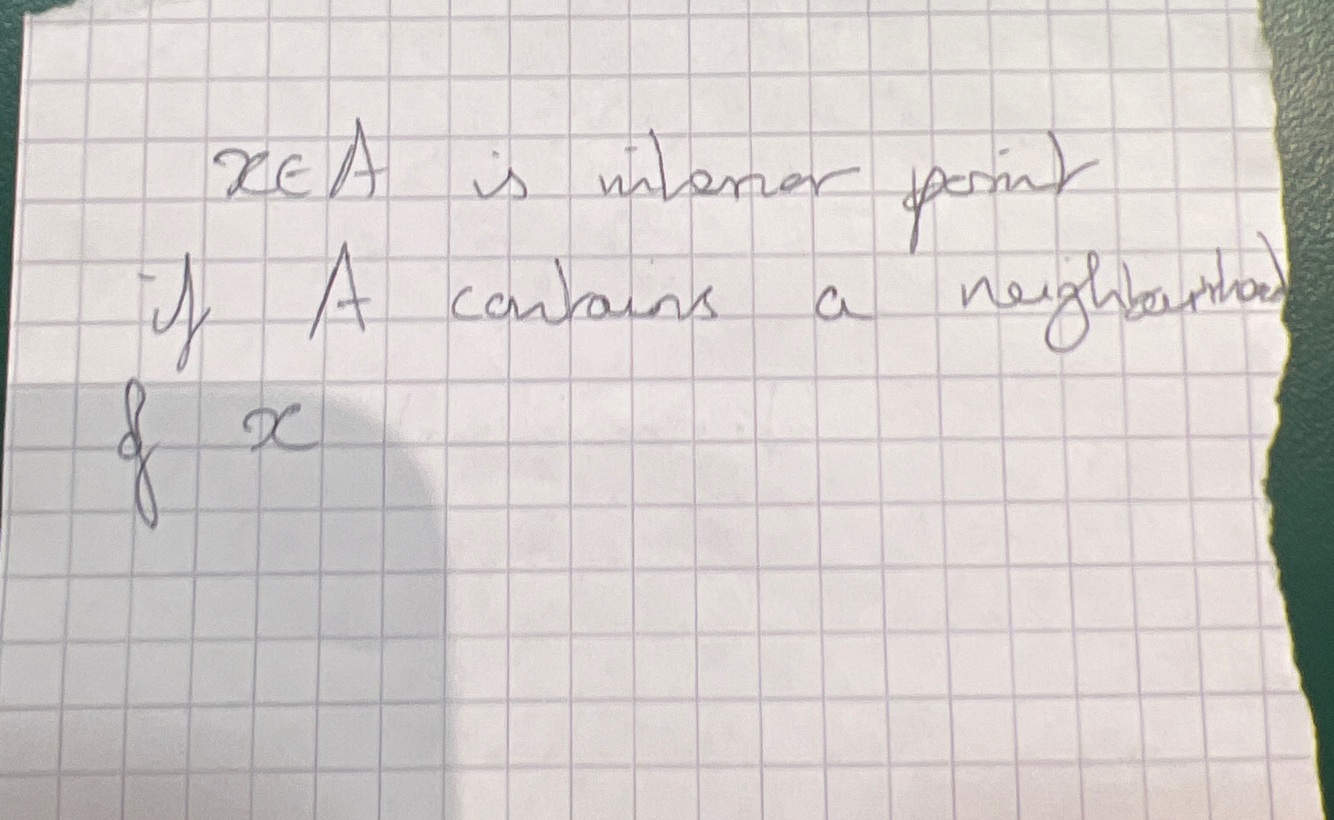 x∈A is interior point
if A contains a neighbourhood
of x